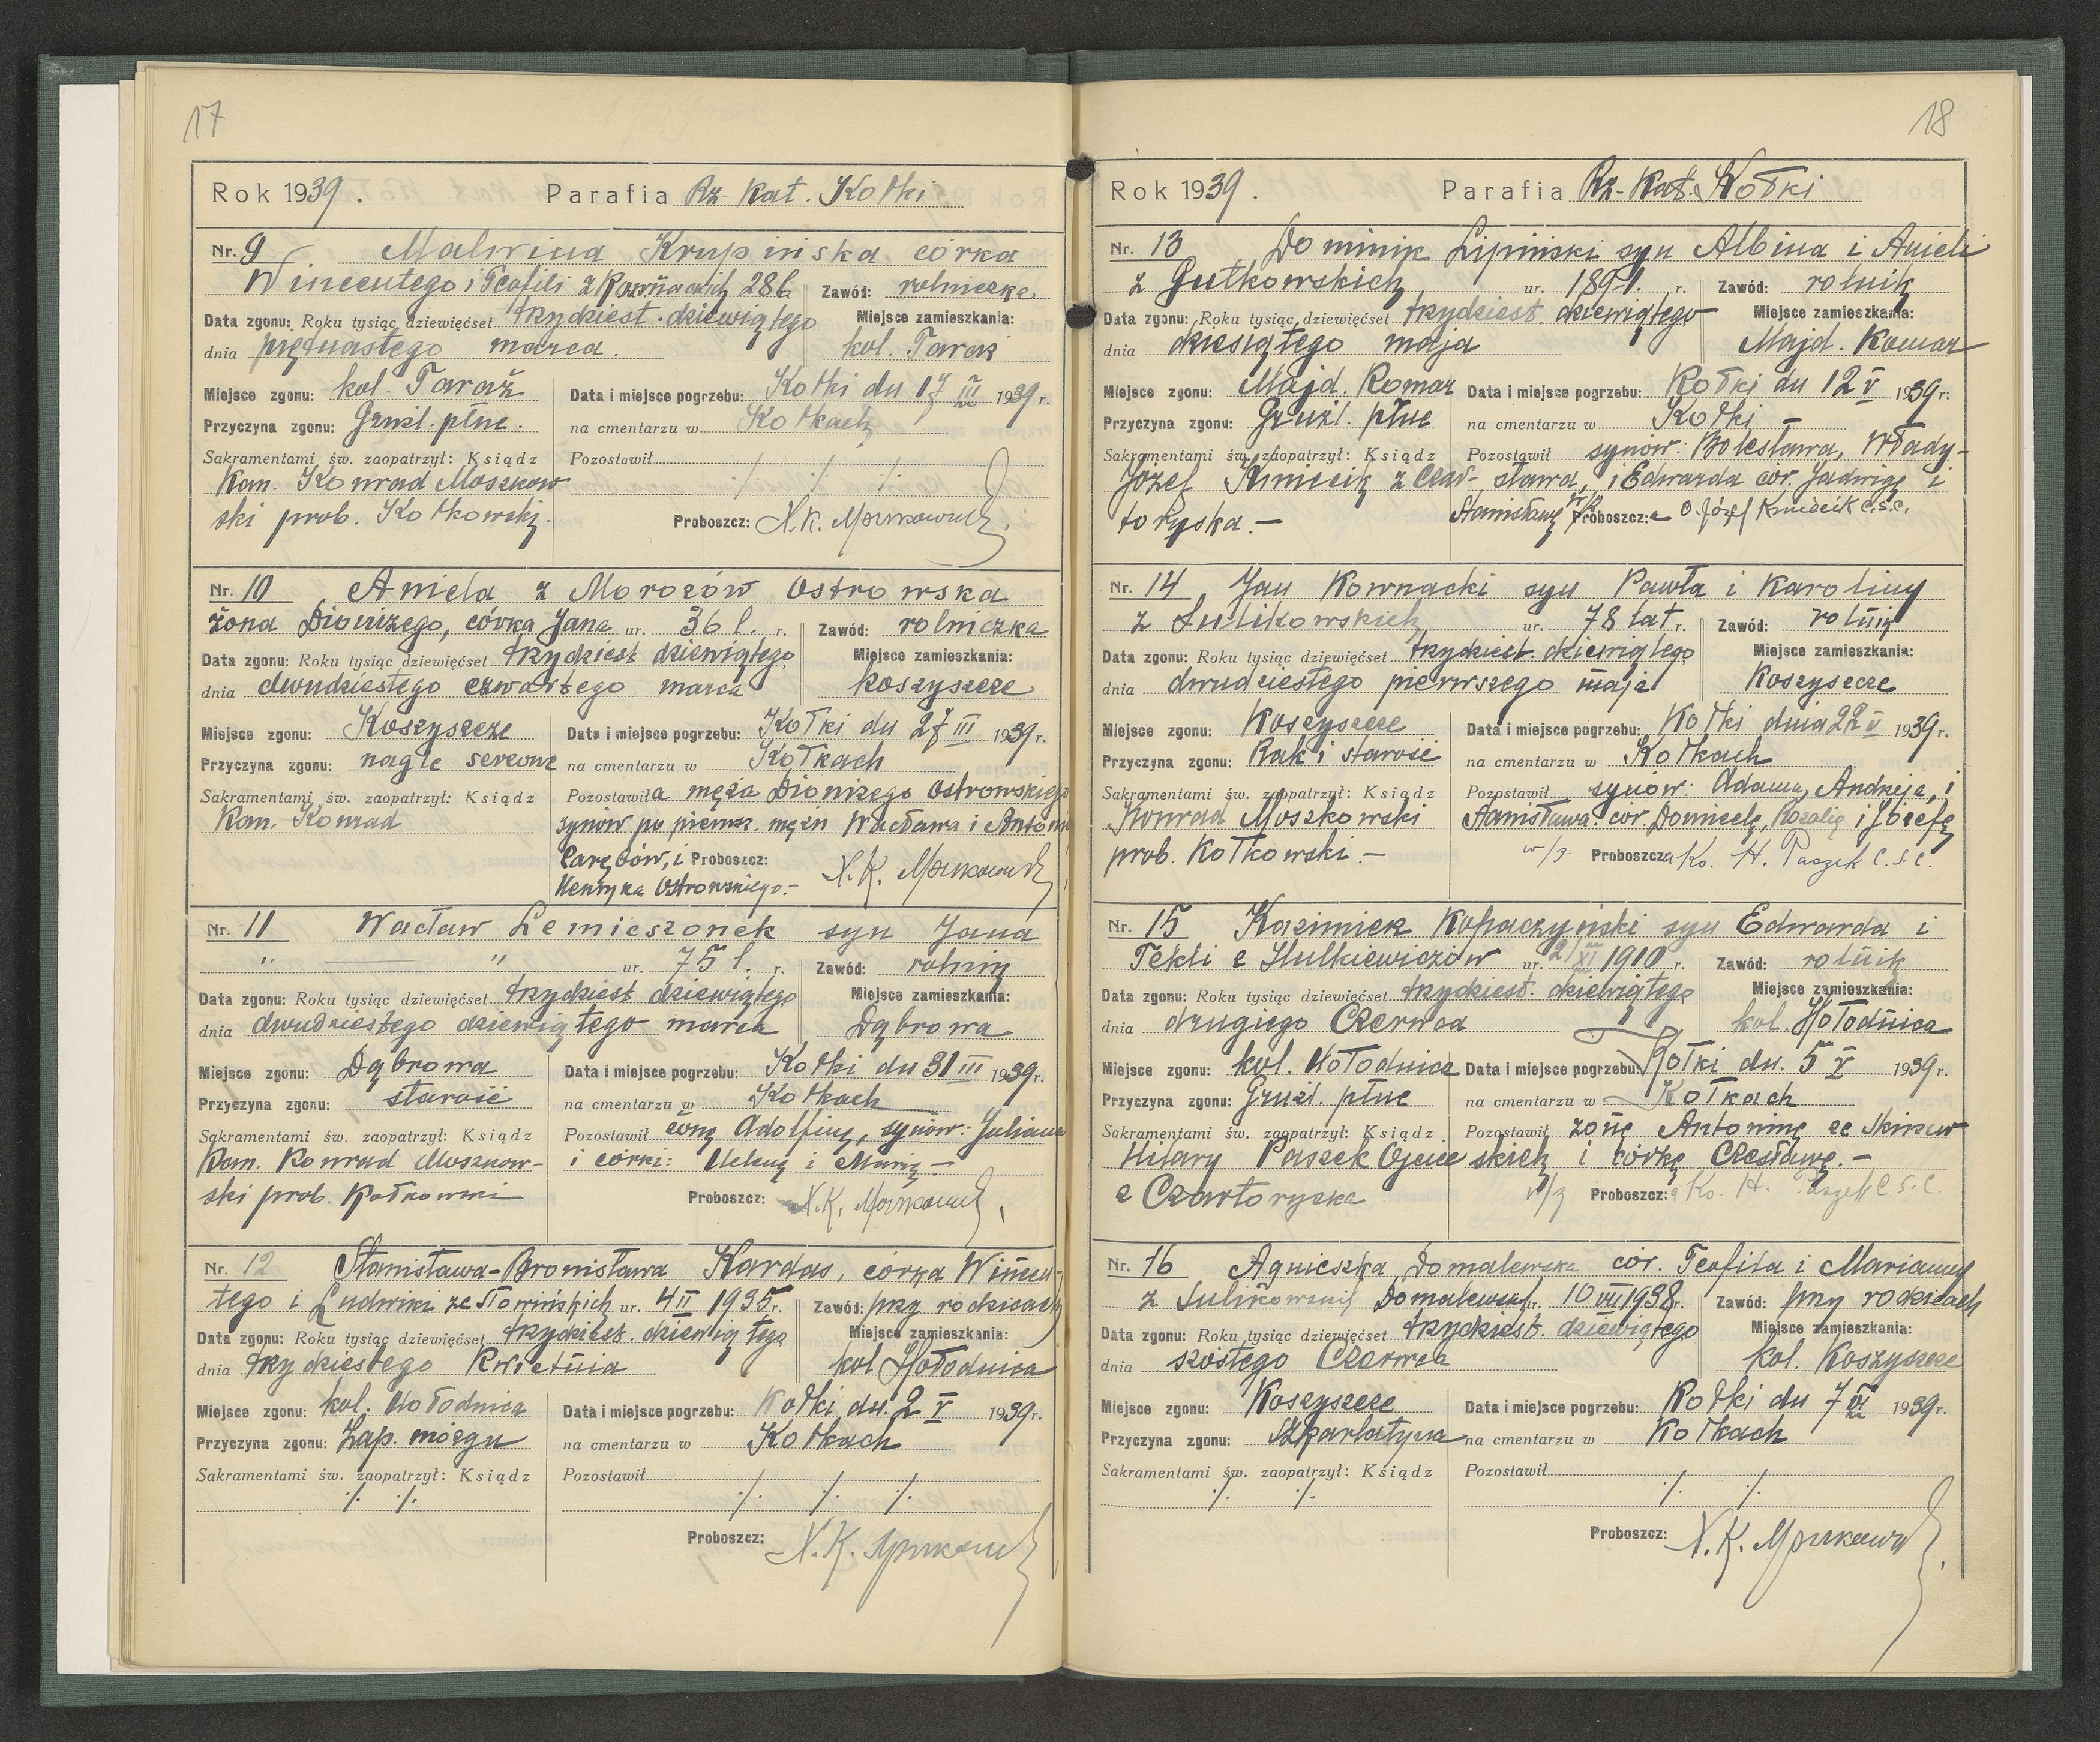 17
Rok 1939. Parafia Rz-Kat. Kołki
Nr. 9 Malwina Krupińska córka
Wincentego i Teofili z Kownackich 28 l. Zawód: rolniczka
Data zgonu: Roku tysiąc dziewięćset trzydziest. dziewiątego Miejsce zamieszkania:
dnia piętnastego marca. kol. Taraż
Miejsce zgonu: kol. Taraż Data i miejsce pogrzebu: Kołki dn 17 III 1939 r.
Przyczyna zgonu: Gruźl. płuc. na cmentarzu w Kołkach
Sakramentami św. zaopatrzył: Ksiądz Pozostawił
Kan. Konrad Moszkow ⁒ ⁒ ⁒
ski prob. Kołkowski. Proboszcz: X. K.
Nr. 10 Aniela z Morozów Ostrowska
żona Dionizego, córka Jana ur. 36 l. r. Zawód: rolniczka
Data zgonu: Roku tysiąc dziewięćset trzydziest dziewiątego Miejsce zamieszkania:
dnia dwudziestego czwartego marca Koszyszcze
Miejsce zgonu: Koszyszcze Data i miejsce pogrzebu: Kołki dn 27 III 1939 r.
Przyczyna zgonu: nagle sercowe na cmentarzu w Kołkach
Sakramentami św. zaopatrzył: Ksiądz Pozostawiła męża Dionizego Ostrowskiego
Kan. Konrad synów po pierwsz. mężu Wacława i Antoni
Zarębów, i Proboszcz: X. K.
Henryka Ostrowskiego.-
Nr. 11 Wacław Lemieszonek syn Jana
" — " ur. 75 l. r. Zawód: rolnik
Data zgonu: Roku tysiąc dziewięćset trzydziest dziewiątego Miejsce zamieszkania:
dnia dwudziestego dziewiątego marca Dąbrowa
Miejsce zgonu: Dąbrowa Data i miejsce pogrzebu: Kołki dn 31 III 1939 r.
Przyczyna zgonu: starość na cmentarzu w Kołkach
Sakramentami św. zaopatrzył: Ksiądz Pozostawił żonę Adolfinę, synów: Juliana
Kan. Konrad Moszkow- i córki: Helenę i Marię —
ski prob. Kołkowski Proboszcz: X. K.
Nr. 12 Stanisława-Bronisława Kardas, córka Wincen-
tego i Ludwiki ze Słowińskich ur. 4 II 1935 r. Zawód: przy rodzicach
Data zgonu: Roku tysiąc dziewięćset trzydziest. dziewiątego Miejsce zamieszkania:
dnia trzydziestego Kwietnia kol. Hołodnica
Miejsce zgonu: kol. Hołodnica Data i miejsce pogrzebu: Kołki dn. 2 V 1939 r.
Przyczyna zgonu: Zap. mózgu na cmentarzu w Kołkach
Sakramentami św. zaopatrzył: Ksiądz Pozostawił
⁒ ⁒ ⁒ ⁒ ⁒
Proboszcz: X. K.
18
Rok 1939. Parafia Rz-Kat. Kołki
Nr. 13 Dominik Lipiński syn Albina i Anieli
z Gutkowskich ur. 1891. r. Zawód: rolnik
Data zgonu: Roku tysiąc dziewięćset trzydziest. dziewiątego Miejsce zamieszkania:
dnia dziesiątego maja Majd. Komar
Miejsce zgonu: Majd. Komar Data i miejsce pogrzebu: Kołki dn 12 V 1939 r.
Przyczyna zgonu: Gruźl. płuc na cmentarzu w Kołki —
Sakramentami św. zaopatrzył: Ksiądz Pozostawił synów: Bolesława, Włady-
Józef Kmiecik z Czar- sława, i Edwarda cór. Jadwigę i
toryska.— Stanisławę w/z Proboszcz:a O. Józef Kmiecik C.S.C.
Nr. 14 Jan Kownacki syn Pawła i Karoliny
z Sulikowskich ur. 78 lat r. Zawód: rolnik
Data zgonu: Roku tysiąc dziewięćset trzydziest. dziewiątego Miejsce zamieszkania:
dnia dwudziestego pierwszego maja Koszyszcze
Miejsce zgonu: Koszyszcze Data i miejsce pogrzebu: Kołki dnia 22 V 1939 r.
Przyczyna zgonu: Rak i starość na cmentarzu w Kołkach
Sakramentami św. zaopatrzył: Ksiądz Pozostawił synów: Adama, Andrzeja, i
Konrad Moszkowski Stanisława. cór. Domicelę, Rozalię i Józefę
prob. Kołkowski.— w/z. Proboszcza Ks. H. Paszek C.S.C.
Nr. 15 Kazimierz Kopaczyński syn Edwarda i
Tekli z Hulkiewiczów ur. 21 XI 1910 r. Zawód: rolnik
Data zgonu: Roku tysiąc dziewięćset trzydziest. dziewiątego Miejsce zamieszkania:
dnia drugiego Czerwca kol. Hołodnica
Miejsce zgonu: kol. Hołodnica Data i miejsce pogrzebu: Kołki dn. 5 V 1939 r.
Przyczyna zgonu: Gruźl. płuc na cmentarzu w Kołkach
Sakramentami św. zaopatrzył: Ksiądz Pozostawił żonę Antoninę ze
Hilary Paszek skich i córkę Czesławę.—
z Czartoryska w/z Proboszcz:a Ks. H. Paszek C.S.C.
Nr. 16 Agnieszka Domalewska cór. Teofila i Marianny
z Sulikowskich Domalewskich ur. 10 VII 1938 r. Zawód: przy rodzicach
Data zgonu: Roku tysiąc dziewięćset trzydziest. dziewiątego Miejsce zamieszkania:
dnia szóstego Czerwca kol. Koszyszcze
Miejsce zgonu: Koszyszcze Data i miejsce pogrzebu: Kołki dn 7 VI 1939 r.
Przyczyna zgonu: Szkarlatyna na cmentarzu w Kołkach
Sakramentami św. zaopatrzył: Ksiądz Pozostawił
⁒ ⁒ ⁒ ⁒
Proboszcz: X. K.